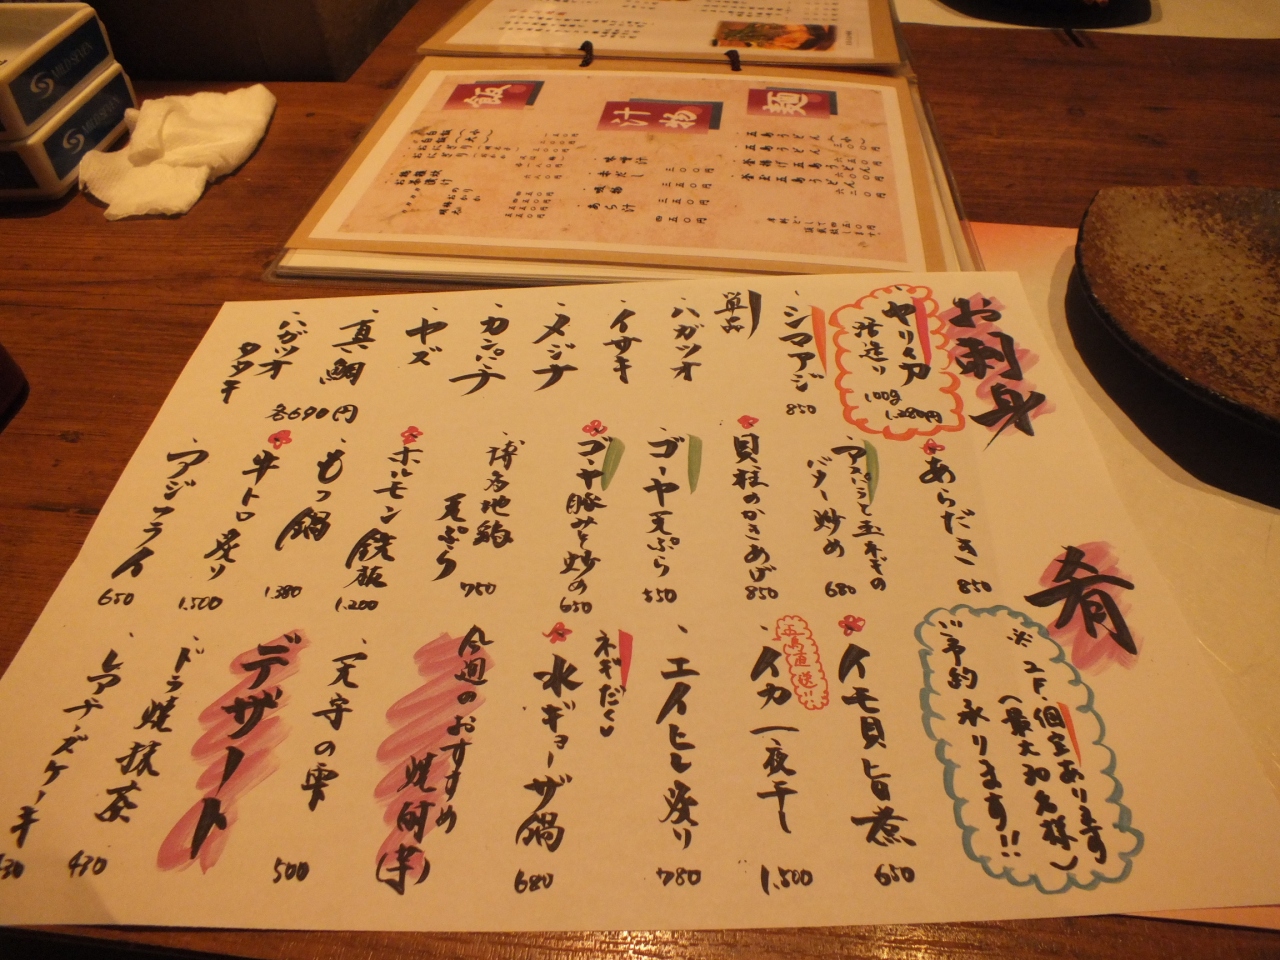 お刺身
ヤリイカ
活造り
100g
1,280円
シマアジ
850
単品
ハガツオ
イサキ
メジナ
カンパチ
ヤズ
真鯛
ハガツオ
タタキ
各690円
肴
あらだき
850
アスパラと玉ネギの
バター炒め
680
貝柱のかきあげ
850
ゴーヤ天ぷら
550
ゴーヤ豚みそ炒め
650
博多地鶏
天ぷら
750
ホルモン鉄板
1,200
もつ鍋
1,380
牛トロ炙り
1,500
アジフライ
650
※2F.個室あります
(最大30名様)
ご予約承ります!!
イモ貝旨煮
650
五島直送!!
イカ一夜干し
1,500
エイヒレ炙り
780
ネギだく
水ギョーザ鍋
680
今週のおすすめ
焼酎(芋)
天守の雫
500
デザート
ドラ焼抹茶
430
レアチーズケーキ
430
麺
五島うどん
釜揚げ五島うどん
汁物
味噌汁
三〇〇円
赤だし
三五〇円
あら汁
四五〇円
飯